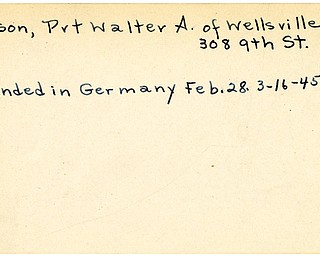 son, Pvt Walter A. of Wellsville
308 9th St.
nded in Germany Feb. 28. 3-16-45